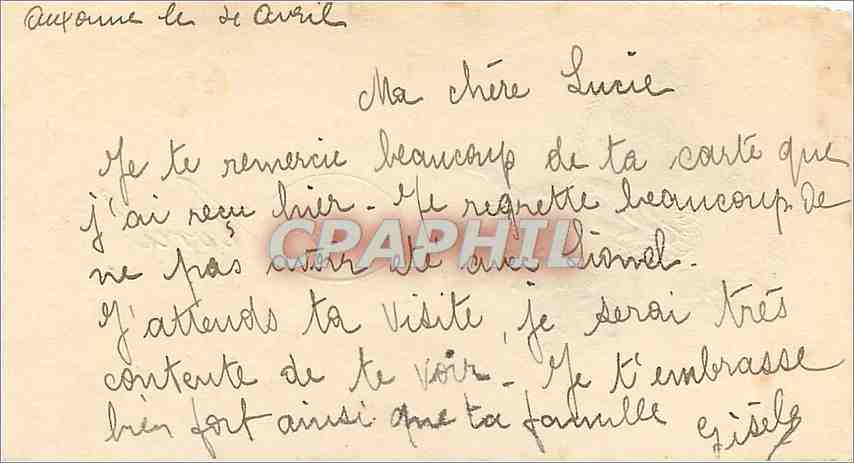 Auxonne le 2 Avril
Ma chère Lucie
Je te remercie beaucoup de ta carte que
j'ai reçu hier - Je regrette beaucoup de
CPAPHIL
ne pas avoir été avec Lionel.
J'attends ta visite, je serai très
contente de te voir - Je t'embrasse
bien fort ainsi que ta famille Gisèle